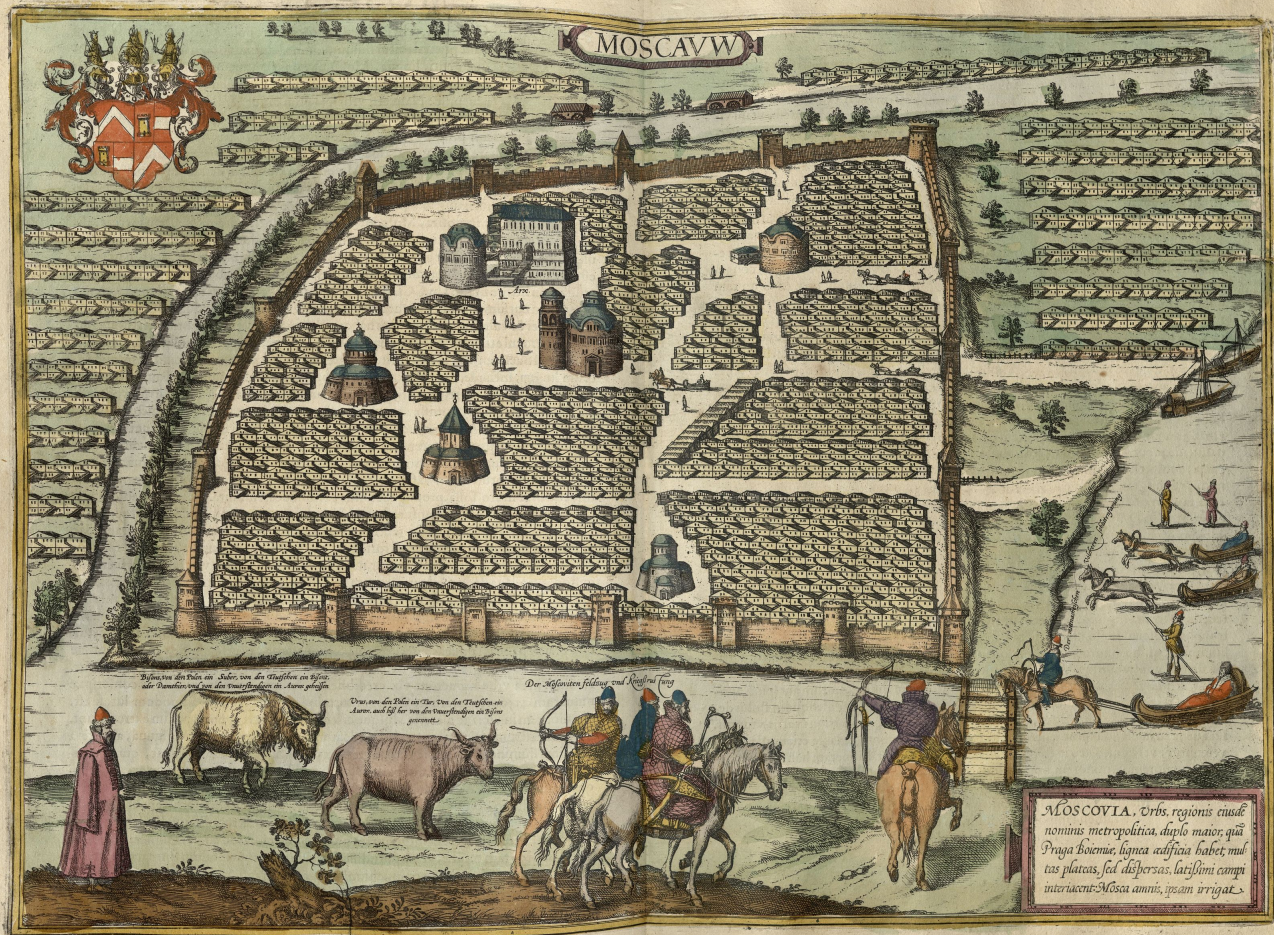 MOSCAVW
Arx.
Bisons, von den Polen ein Suber, von den Teutschen ein Bisont,
oder Damthier, vnd von den Vnuerstendigen ein Auròx geheissen
Vrus, von den Polen ein Tur, Von den Teutschen ein
Aurox, auch biß her von den Vnuerstendigen ein Bisons
genennett.
Der Moscouiten feldzug vnd Kriegsrus tung
MOSCOVIA, Vrbs, regionis eiusdẽ
nominis metropolitica, duplo maior, quã
Praga Boiemiæ, lignea ædificia habet, mul
tas plateas, sed dispersas, latissimi campi
interiacent: Mosca amnis, ipsam irrigat.